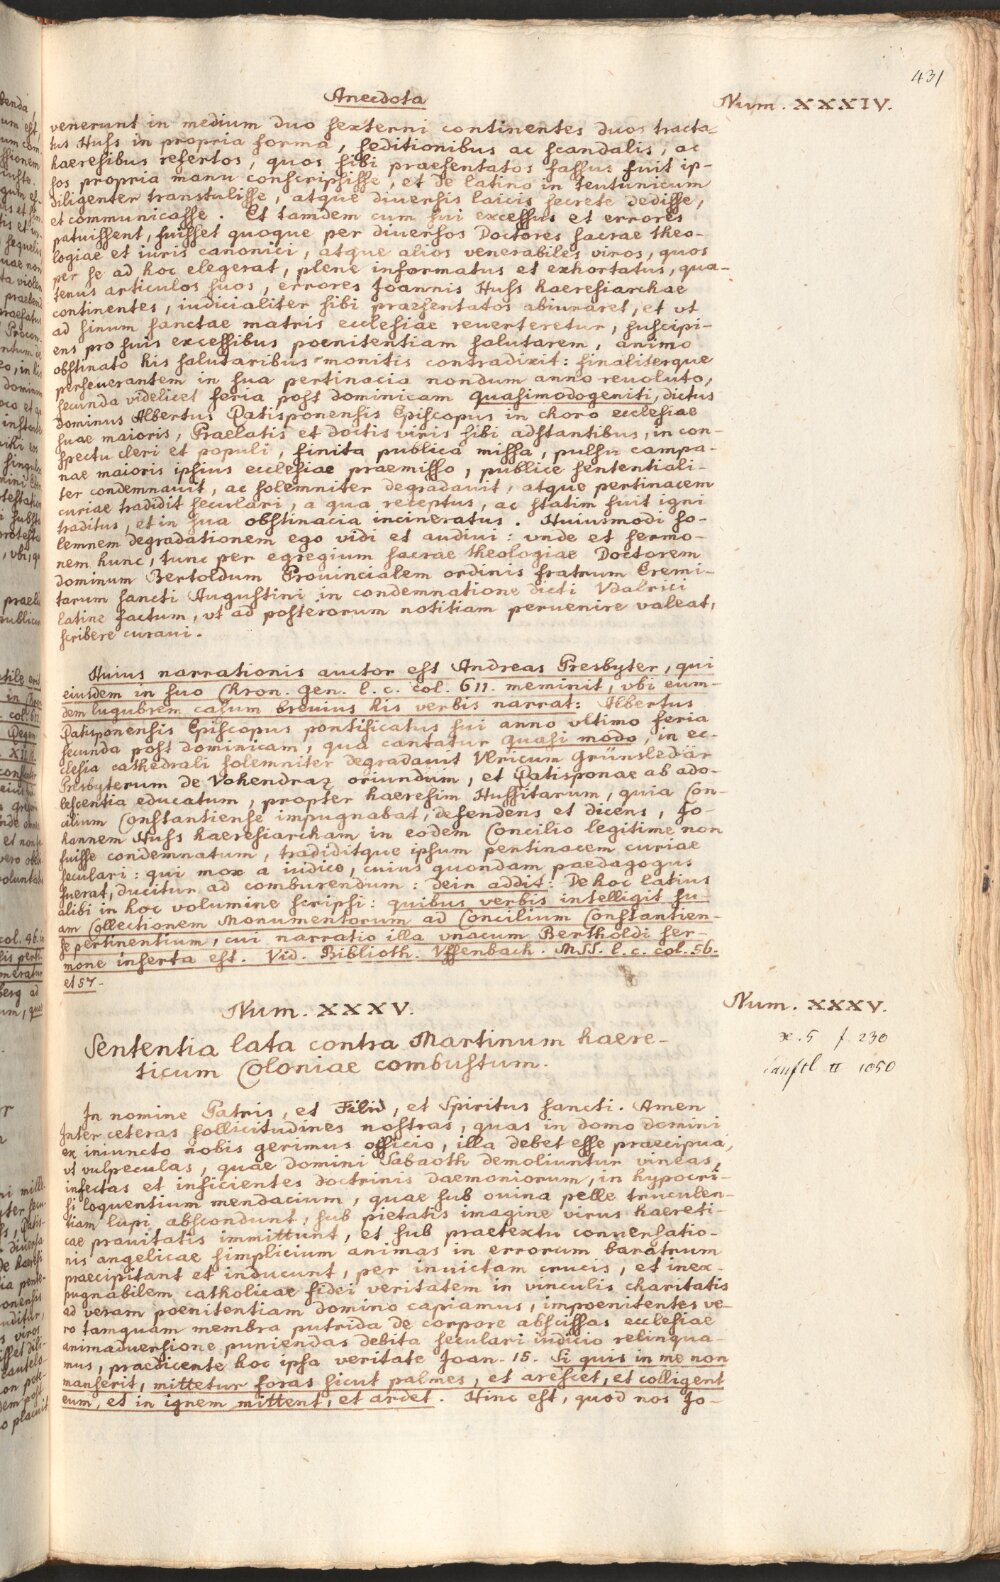 431
Anecdota
Num. XXXIV.
venerunt in medium duo sexterni continentes duos tracta-
tus Huss in propria forma, seditionibus ac scandalis, ac
haeresibus refertos, quos sibi praesentatos fassus fuit ip-
sos propria manu conscripsisse, et de latino in teutunicum
diligenter transtulisse, atque diuersis laicis secrete dedisse,
et communicasse. Et tamdem cum sui excessus et errores
patuissent, fuisset quoque per diuersos Doctores sacrae theo-
logiae et iuris canonici, atque alios venerabiles viros, quos
per se ad hoc elegerat, plene informatus et exhortatus, qua-
tenus articulos suos, errores Joannis Huss haeresiarchae
continentes, iudicialiter sibi praesentatos abiuraret, et vt
ad sinum sanctae matris ecclesiae reuerteretur, suscipi-
ens pro suis excessibus poenitentiam salutarem, animo
obstinato his salutaribus monitis contradixit: finaliterque
perseuerantem in sua pertinacia nondum anno reuoluto,
secunda videlicet feria post dominicam quasimodogeniti, dictus
dominus Albertus Ratisponensis Episcopus in choro ecclesiae
suae maioris, Praelatis et doctis viris sibi adstantibus, in con-
spectu cleri et populi, finita publica missa, pulsu campa-
nae maioris ipsius ecclesiae praemisso, publice sententiali-
ter condemnauit, ac solemniter degradauit, atque pertinacem
curiae tradidit seculari, a qua receptus, ac statim fuit igni
traditus, et in sua obstinacia incineratus. Huiusmodi so-
lemnem degradationem ego vidi et audiui: vnde et sermo-
nem hunc, tunc per egregium sacrae theologiae Doctorem
dominum Bertoldum Prouincialem ordinis fratrum Eremi-
tarum sancti Augustini in condemnatione dicti Vdalrici
latine factum, vt ad posterorum notitiam peruenire valeat,
scribere curaui.
Huius narrationis auctor est Andreas Presbyter, qui
eiusdem in suo Chron. Gen. l. c. col. 611. meminit, vbi eum-
dem lugubrem casum breuius his verbis narrat: Albertus
Ratisponensis Episcopus pontificatus sui anno vltimo feria
secunda post dominicam, qua cantatur quasi modo, in ec-
clesia cathedrali solemniter degradauit Vlricum Grünsledär
Presbyterum de Vohendraz oriundum, et Ratisponae ab ado-
lescentia educatum, propter haeresim Hussitarum, quia Con-
cilium Constantiense impugnabat, defendens et dicens, Jo-
hannem Huss haeresiarcham in eodem Concilio legitime non
fuisse condemnatum, tradiditque ipsum pertinacem curiae
seculari: qui mox a iudice, cuius quondam paedagogus
fuerat, ducitur ad comburendum: dein addit: De hoc latius
alibi in hoc volumine scripsi: quibus verbis intelligit su-
am Collectionem Monumentorum ad Concilium Constantien-
se pertinentium, cui narratio illa vnacum Bertholdi ser-
mone inserta est. Vid. Biblioth. Vffenbach. MSS. l. c. col. 56.
et 57.
Num. XXXV.
Num. XXXV.
Sententia lata contra Martinum haere-
ticum Coloniae combustum.
x. 5 f. 230
II 1050
In nomine Patris, et Filii, et Spiritus sancti. Amen
Inter ceteras sollicitudines nostras, quas in domo domini
ex iniuncto nobis gerimus officio, illa debet esse praecipua,
vt vulpeculas, quae domini Sabaoth demoliuntur vineas,
infectas et inficientes doctrinis daemoniorum, in hypocri-
si loquentium mendacium, quae sub ouina pelle truculen-
tiam lupi abscondunt; sub pietatis imagine virus haereti-
cae prauitatis immittunt, et sub praetextu conuersatio-
nis angelicae simplicium animas in errorum baratrum
praecipitant et inducunt, per inuictam crucis, et inex-
pugnabilem catholicae fidei veritatem in vinculis charitatis
ad veram poenitentiam domino capiamus, impoenitentes ve-
ro tamquam membra putrida de corpore abscissas ecclesiae
animaduersione puniendas debita seculari iudicio relinqua-
mus, praedicente hoc ipsa veritate Joan. 15. Si quis in me non
manserit, mittetur foras sicut palmes, et arescet, et colligent
eum, et in ignem mittent, et ardet. Hinc est, quod nos Jo-